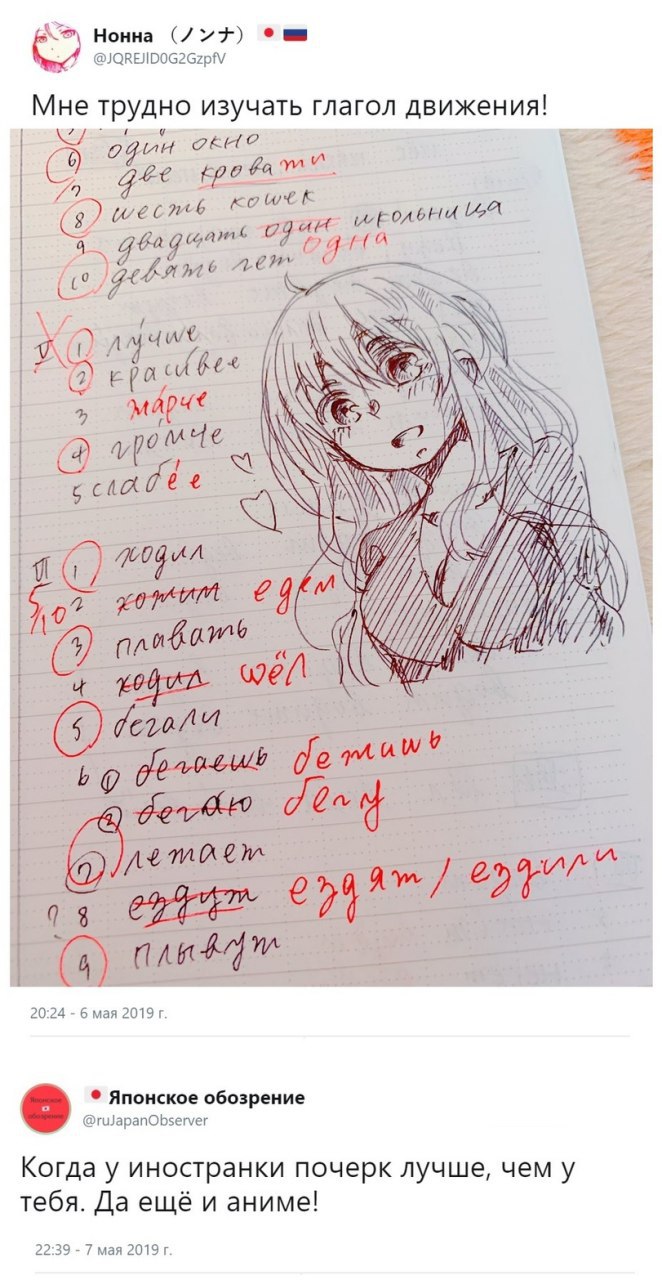 Нонна （ノンナ）
@JQREJlD0G2GzpfV
Мне трудно изучать глагол движения!
6 один окно
7 две кровати
8 шесть кошек
9 двадцать один школьница
одна
10 девять лет
V 1 лу́чше
2 краси́вее
3 жа́рче
4 гро́мче
5 слабе́е
VI 1 ходил
5/10 2 хотим едем
3 плавать
4 ходил шёл
5 бегали
6 1 бегаешь бежишь
2 бегаю бегу
7 летает
? 8 ездут ездят / ездили
9 плывут
20:24 - 6 мая 2019 г.
Японское обозрение
Японское
обозрение
@ruJapanObserver
Когда у иностранки почерк лучше, чем у
тебя. Да ещё и аниме!
22:39 - 7 мая 2019 г.